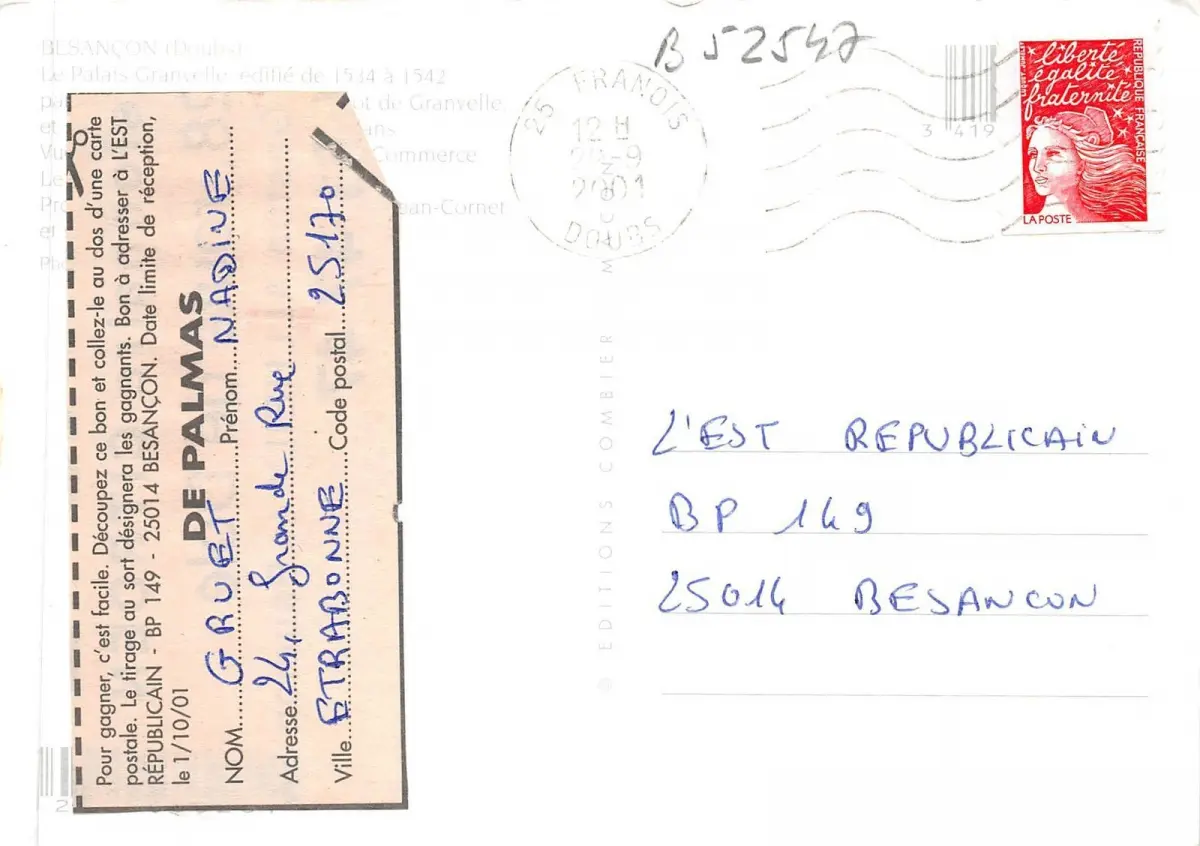 BESANÇON (Doubs)
Le Palais Granvelle, édifié de 1534 à 1542
de Granvelle
et
Commerce
Jean-Cornet
et
Pour gagner, c'est facile. Découpez ce bon et collez-le au dos d'une carte
postale. Le tirage au sort désignera les gagnants. Bon à adresser à L'EST
RÉPUBLICAIN - BP 149 - 25014 BESANÇON. Date limite de réception,
le 1/10/01
DE PALMAS
NOM GRUET Prénom NADINE
Adresse 24, Grande Rue
Ville ETRABONNE Code postal 25170
B 52547
25 FRANOIS
12 H
2001
DOUBS
3 419
liberté
égalité
fraternité
RÉPUBLIQUE FRANÇAISE
LA POSTE
EDITIONS COMBIER MÂCON
L'EST REPUBLICAIN
BP 149
25014 BESANCON
2